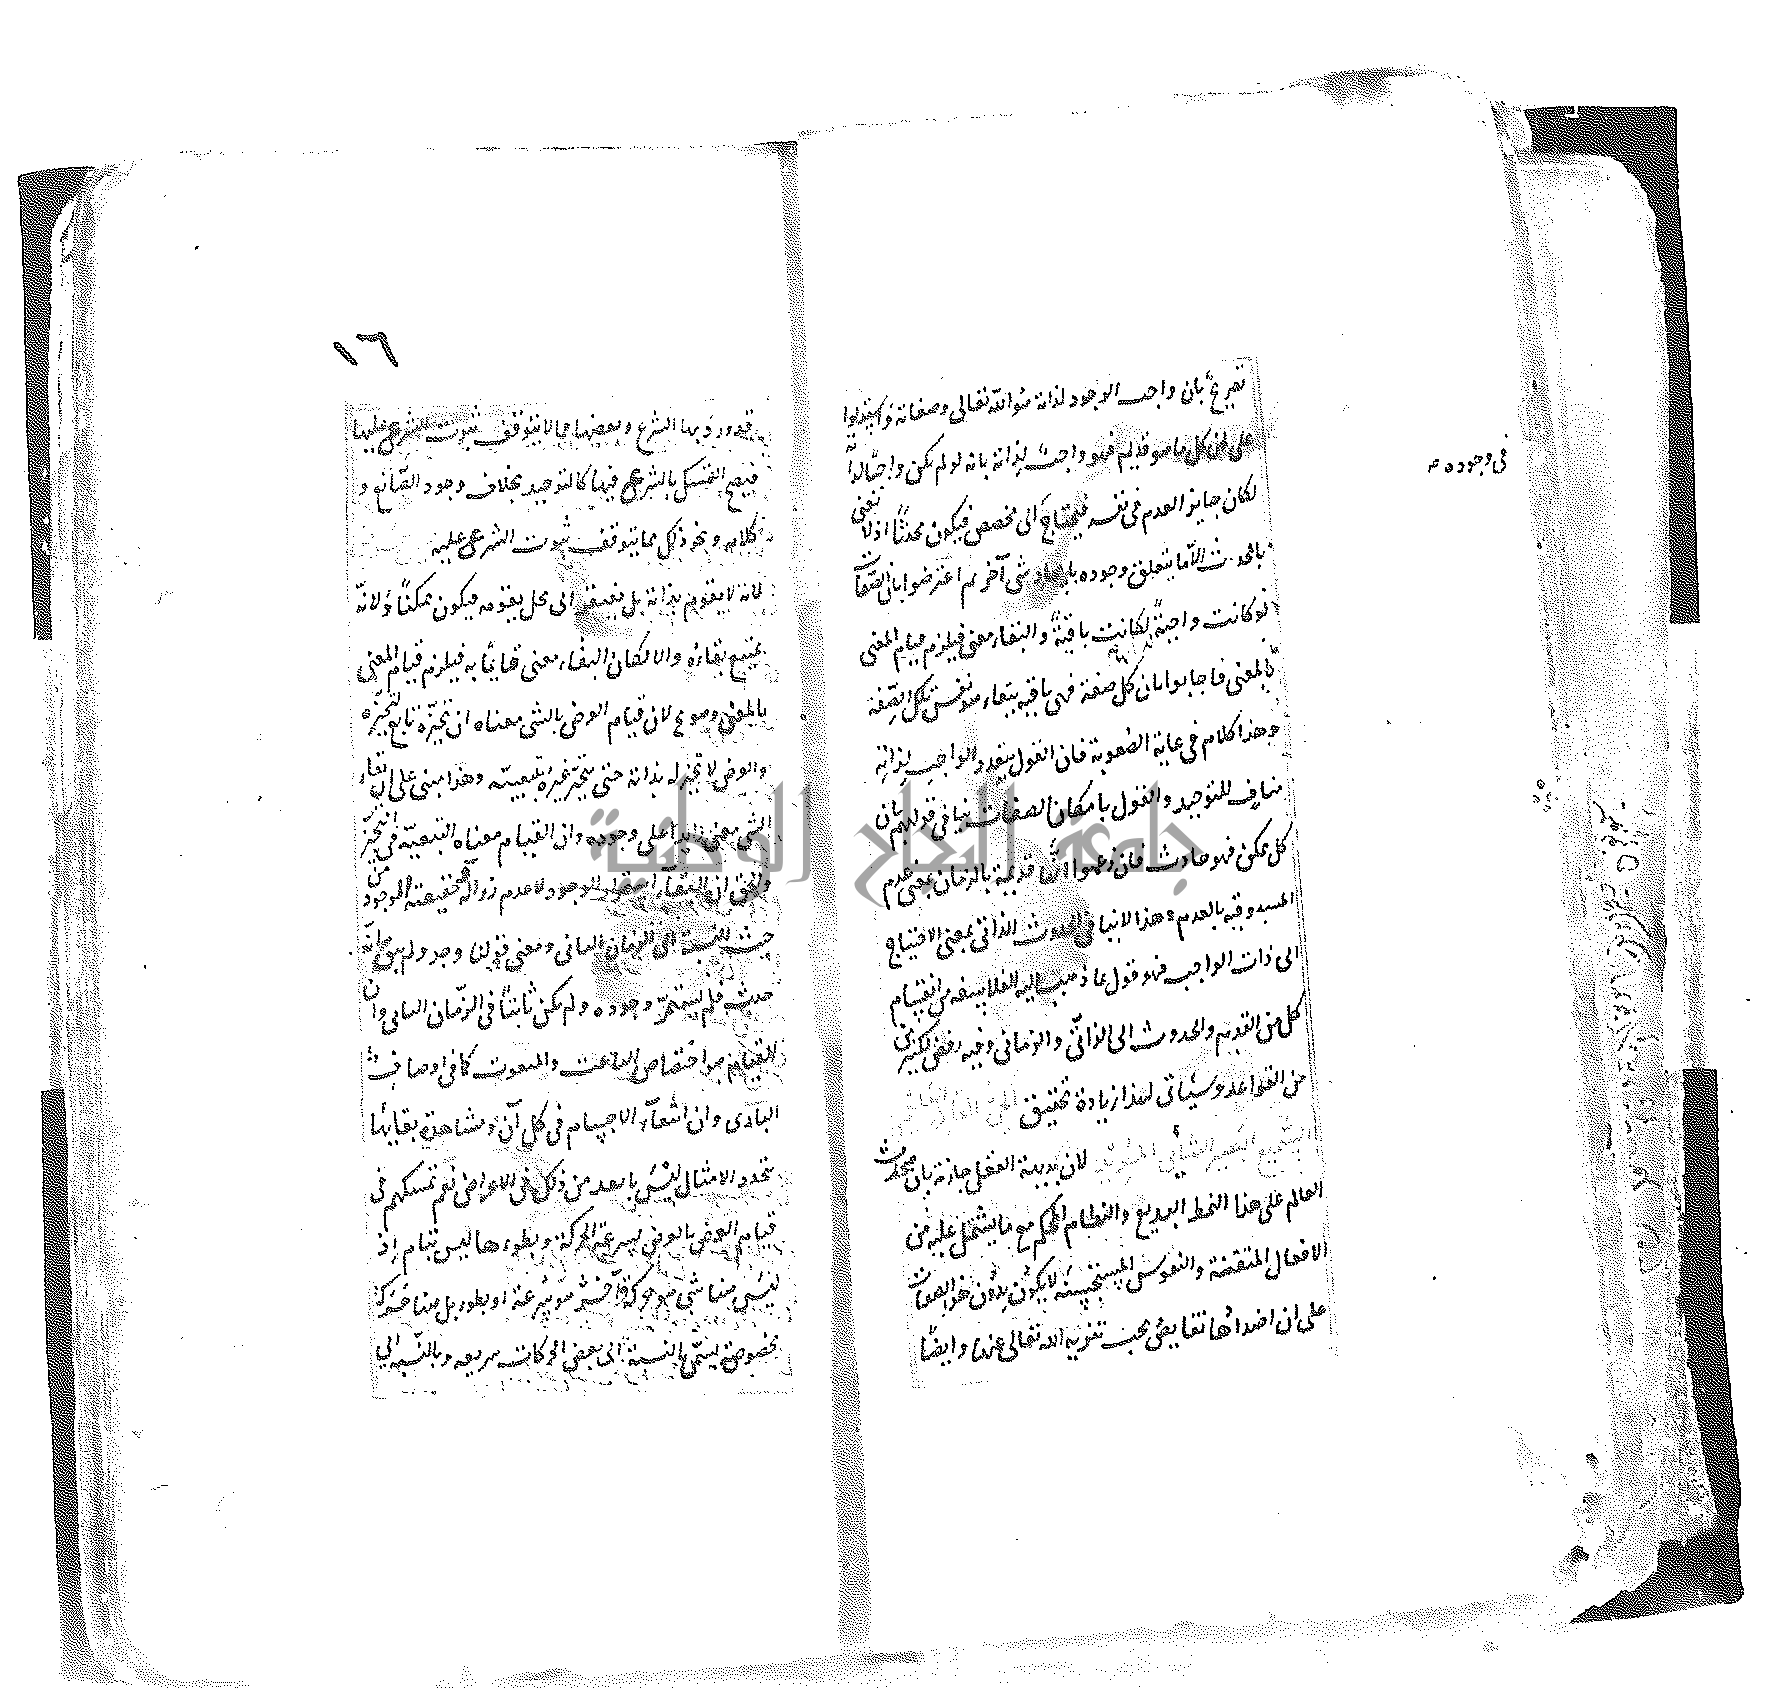 تصريح بان واجب الوجود لذاته هو الله تعالى وصفاته واستدلوا
على ان كل ما هو قديم فهو واجب لذاته بانه لو لم يكن واجبا لذاته
لكان جايز العدم فى نفسه فيحتاج الى مخصص فيكون محدثا اذ لا نعنى
فى وجوده
بالمحدث الا ما يتعلق وجوده بايجاد شى آخر ثم اعترضوا بان الصفات
لو كانت واجبة لكانت باقية والبقاء معنى فيلزم قيام المعنى
بالمعنى فاجابوا بان كل صفة فهى باقيه ببقاء هو نفس تلك الصفة
وهذا كلام فى غاية الصعوبة فان القول بتعدد الواجب لذاته
مناف للتوحيد والقول بامكان الصفات ينافى قولهم بان
كل ممكن فهو حادث فان زعموا انها قديمة بالزمان بمعنى عدم
المسبوقيه بالعدم وهذا لا ينافى الحدوث الذاتى بمعنى الاحتياج
الى ذات الواجب فهو قول بما ذهب اليه الفلاسفه من انقسام
كل من القديم والحدوث الى الذاتى والزمانى وفيه رفض لكثير
من القواعد وسياتى لهذا زيادة تحقيق الحى القادر العليم
السميع البصير الشائى المريد لان بديهة العقل جازمة بان محدث
العالم على هذا النمط البديع والنظام المحكم مع ما يشتمل عليه من
الافعال المتقنة والنقوش المستحسنة لا يكون بدون هذه الصفات
على ان اضدادها نقايص يجب تنزيه الله تعالى عنها وايضا
١٦
قد ورد بها الشرع وبعضها مما لا يتوقف ثبوت الشرع عليها
فيصح التمسك بالشرع فيها كالتوحيد بخلاف وجود الصانع و
كلامه ونحو ذلك مما يتوقف ثبوت الشرع عليه
لانه لا يقوم بذاته بل يفتقر الى محل يقومه فيكون ممكنا ولانه
يمتنع بقاؤه والا لكان البقاء معنى قايما به فيلزم قيام المعنى
بالمعنى وهو مح لان قيام العرض بالشى معناه ان تحيزه تابع لتحيزه
والعرض لا تحيز له بذاته حتى يتحيز غيره بتبعيته وهذا مبنى على ان بقاء
الشى معنى زايد على وجوده وان القيام معناه التبعية فى التحيز
والحق ان البقاء استمرار الوجود لا عدم زواله وحقيقته الوجود من
حيث النسبة الى الزمان الثانى ومعنى قولنا وجد ولم يبق انه
حدث فلم يستمر وجوده ولم يكن ثابتا فى الزمان الثانى وان
القيام هو اختصاص الناعت والمنعوت كما فى اوصاف
البارى وان انتفاء الاجسام فى كل آن ومشاهدة بقائها
بتجدد الامثال ليس بابعد من ذلك فى الاعراض نعم تمسكهم فى
قيام العرض بالعرض بسرعة الحركة وبطوءها ليس بتام اذ
ليس هنا شى هو حركة وآخر هو سرعة او بطوء بل هنا حركة
مخصوصة تسمى بالنسبة الى بعض الحركات سريعه وبالنسبه الى
جامعة النجاح الوطنية